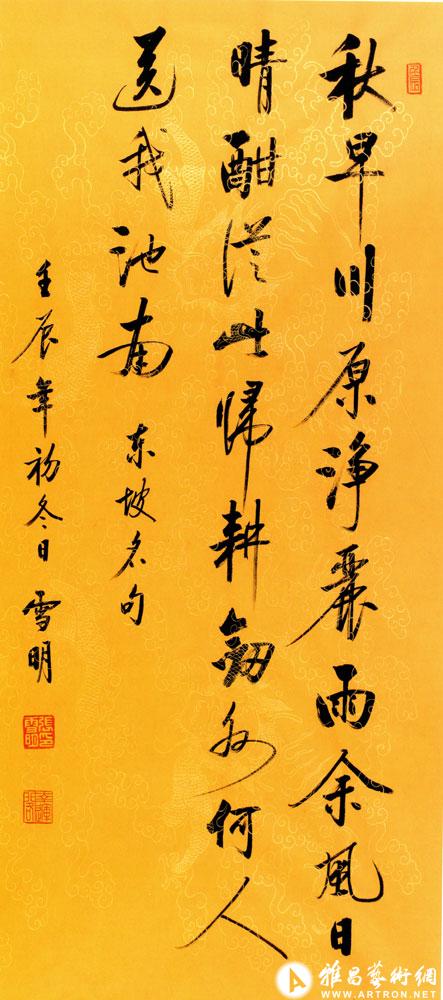 秋早川原净丽雨余风日
晴酣从此归耕剑外何人
送我池南 东坡名句
壬辰年初冬日 雪明
雅昌藝術網
WWW.ARTRON.NET